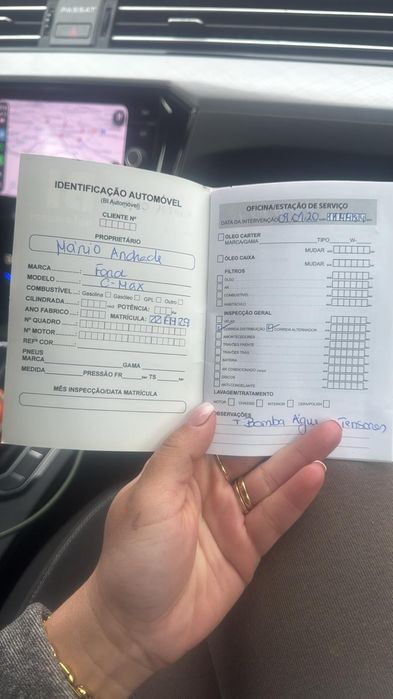 PASSAT
IDENTIFICAÇÃO AUTOMÓVEL
(BI Automóvel)
CLIENTE Nº
PROPRIETÁRIO
Mário Andrade
MARCA Ford
MODELO C-Max
COMBUSTÍVEL Gasolina Gasóleo GPL Outro
CILINDRADA POTÊNCIA
ANO FABRICO MATRÍCULA
Nº QUADRO
Nº MOTOR
REFª COR
PNEUS
MARCA GAMA
MEDIDA PRESSÃO FR TS
MÊS INSPECÇÃO/DATA MATRÍCULA
OFICINA/ESTAÇÃO DE SERVIÇO
DATA DA INTERVENÇÃO
ÓLEO CARTER
MARCA/GAMA TIPO W-
MUDAR
ÓLEO CAIXA
MUDAR
FILTROS
ÓLEO
AR
COMBUSTÍVEL
HABITÁCULO
INSPECÇÃO GERAL
VELAS
CORREIA DISTRIBUIÇÃO CORREIA ALTERNADOR
AMORTECEDORES
TRAVÕES FRENTE
TRAVÕES TRÁS
BATERIA
AR CONDICIONADO
DISCOS
ANTI-CONGELANTE
LAVAGEM/TRATAMENTO
MOTOR CHASSIS INTERIOR CERA/POLISH
OBSERVAÇÕES
+ Bomba Água